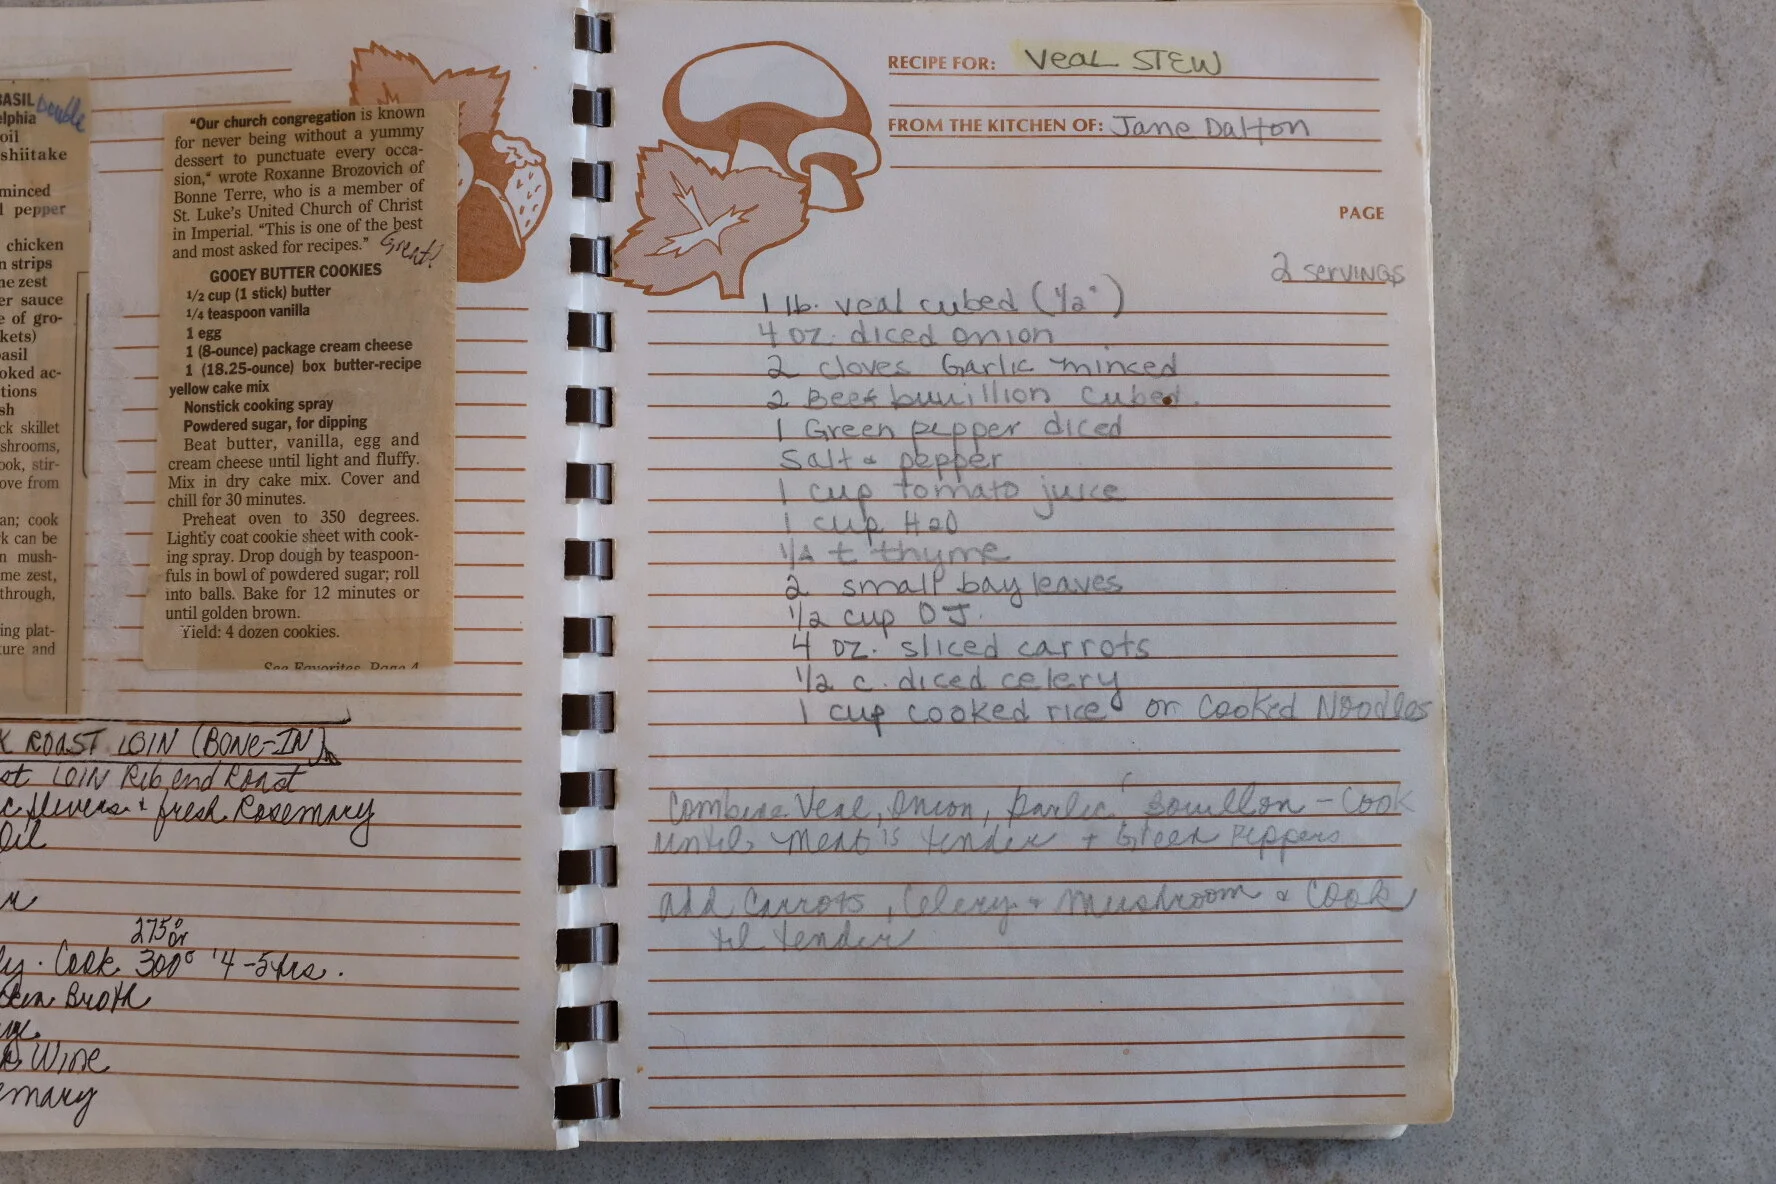 BASIL
Double
elphia
oil
shiitake
minced
pepper
chicken
n strips
ne zest
er sauce
e of gro-
kets)
basil
oked ac-
tions
sh
ck skillet
shrooms,
ook, stir-
ove from
an; cook
k can be
n mush-
me zest,
through,
ing plat-
ture and
"Our church congregation is known
for never being without a yummy
dessert to punctuate every occa-
sion," wrote Roxanne Brozovich of
Bonne Terre, who is a member of
St. Luke's United Church of Christ
in Imperial. "This is one of the best
and most asked for recipes."
Great!
GOOEY BUTTER COOKIES
1/2 cup (1 stick) butter
1/4 teaspoon vanilla
1 egg
1 (8-ounce) package cream cheese
1 (18.25-ounce) box butter-recipe
yellow cake mix
Nonstick cooking spray
Powdered sugar, for dipping
Beat butter, vanilla, egg and
cream cheese until light and fluffy.
Mix in dry cake mix. Cover and
chill for 30 minutes.
Preheat oven to 350 degrees.
Lightly coat cookie sheet with cook-
ing spray. Drop dough by teaspoon-
fuls in bowl of powdered sugar; roll
into balls. Bake for 12 minutes or
until golden brown.
Yield: 4 dozen cookies.
See Favorites, Page 4
K ROAST LOIN (BONE-IN)
st LOIN Rib end Roast
c slivers + fresh Rosemary
Oil
275° or
ly. Cook 300° 4-5 hrs.
cken Broth
Wine
emary
RECIPE FOR: Veal STEW
FROM THE KITCHEN OF: Jane Dalton
PAGE
2 servings
1 lb. veal cubed (1/2")
4 oz. diced onion
2 cloves Garlic minced
2 Beef buuillion cubed.
1 Green pepper diced
Salt & pepper
1 cup tomato juice
1 cup H2O
1/4 t thyme
2 small bay leaves
1/2 cup OJ.
4 oz. sliced carrots
1/2 c. diced celery
1 cup cooked rice or Cooked Noodles
Combine Veal, Onion, garlic, Bouillon - Cook
until meat is tender + Green Peppers
add Carrots, Celery + Mushroom & Cook
til tender